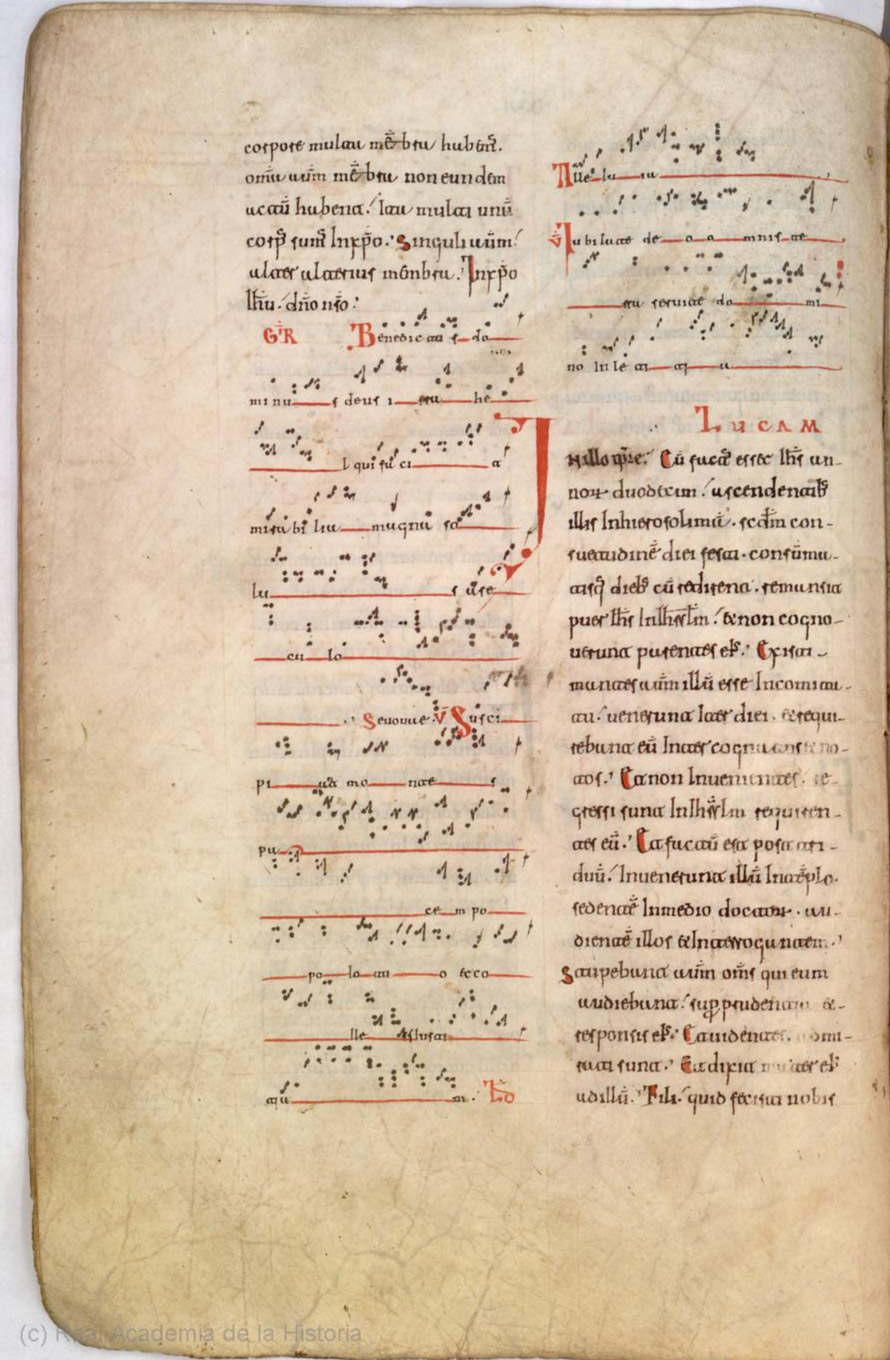 corpore multa mẽbra habent.
om̃a aut̃m mẽbra non eundem
actũ habent. Ita multi unũ
corp̃ sum̃ In xp̃o. Singuli aut̃m
alter alterius mẽmbra. In xp̃o
Ih̃u dño nr̃o.
GR̃ Benedictu s do
minu s deus i sra he
l qui fa ci t
mirabi lia magna so
lu s a se
cu lo
Seuouae. V̄ Susci
pi ant mo ntes
pa
ce m po
po lo tu o et co
lles iusti
tia m.
Alle lu ia
V̄ Iubilate de o o mnis te
rra seruite do mi
no In le ti ti a
LUCAM
In illo tp̃re. Cũ fact⁹ esset Ih̃s an-
norum duodecim ascendentib⁹
illis In hierosolimã. scd̃m con-
suetudinẽ diei festi. consũma-
tisq̃ dieb⁹ cũ redirent. remansit
puer Ih̃s In Ih̃rlm̃ et non cogno-
uerunt parentes ei⁹. Existi-
mantes aut̃m illũ esse In comita-
tu uenerunt Iter diei. et requi-
rebant eũ Inter cognatos et no-
tos. Et non Inuenientes. re-
gressi sunt In Ih̃rlm̃ requiren-
tes eũ. Et factũ est post tri-
duũ Inuenerunt illũ In tẽplo.
sedentẽ In medio doctorum. au-
dientẽ illos et Interrogantem.
Stupebant aut̃m om̃s qui eum
audiebant sup̃ prudentia et
responsis ei⁹. Et uidentes. admi-
rati sunt. Et dixit mater ei⁹
ad illũ. Fili quid fecisti nobis
(c) Real Academia de la Historia